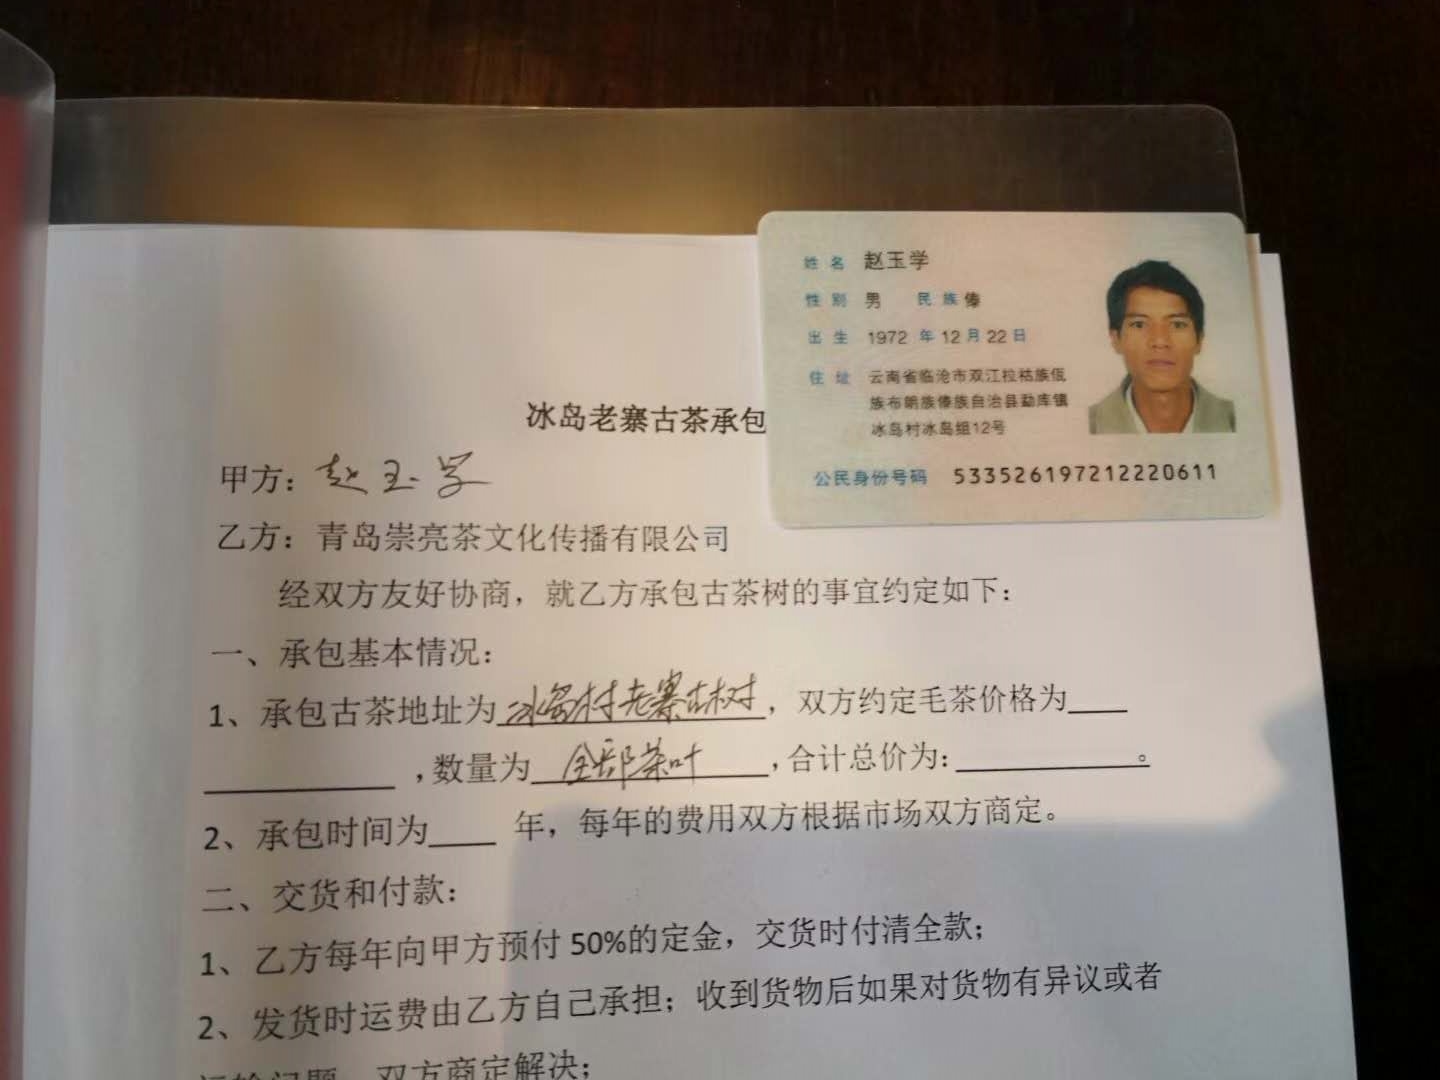 姓名 赵玉学
性别 男 民族 傣
出生 1972 年 12 月 22 日
住址 云南省临沧市双江拉祜族佤
族布朗族傣族自治县勐库镇
冰岛村冰岛组12号
公民身份号码 533526197212220611
冰岛老寨古茶承包
甲方：赵玉学
乙方：青岛崇亮茶文化传播有限公司
经双方友好协商，就乙方承包古茶树的事宜约定如下：
一、承包基本情况：
1、承包古茶地址为冰岛村老寨古树，双方约定毛茶价格为
，数量为 全部茶叶 ，合计总价为： 。
2、承包时间为 年，每年的费用双方根据市场双方商定。
二、交货和付款：
1、乙方每年向甲方预付 50%的定金，交货时付清全款；
2、发货时运费由乙方自己承担；收到货物后如果对货物有异议或者
运输问题，双方商定解决；